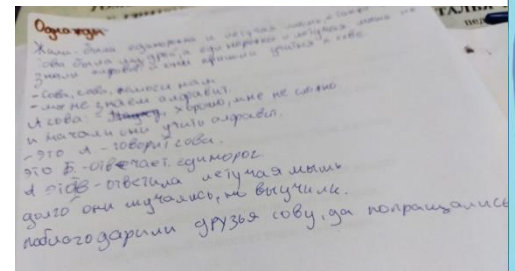 Однажды
Жила-была единорожка и летучая мышь, и сова
сова была мудрой, а единорожка и летучая мышь не
знали алфавит и они пришли учиться к сове.
-Сова, сова, помоги нам
-мы не знаем алфавит.
А сова - хорошо, мне не сложно
и начали они учить алфавит.
-это А. -говорит сова.
это Б. -отвечает единорог.
А это В -ответила летучая мышь
долго они мучались, но выучили.
поблагодарили друзья сову, да попращались